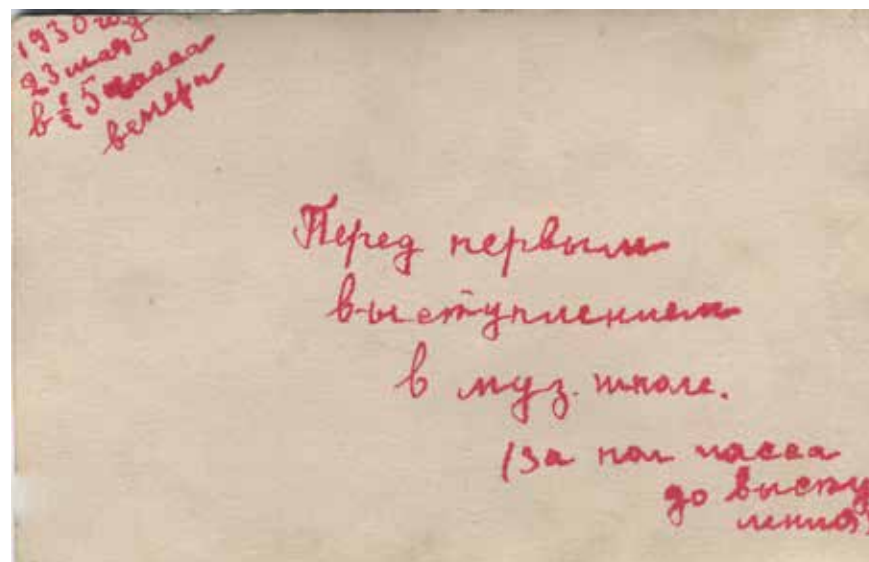 1930 год
23 мая
в ½ 5 часса
вечера
Перед первым
выступлением
в муз. школе.
(за пол часса
до высту
ления)